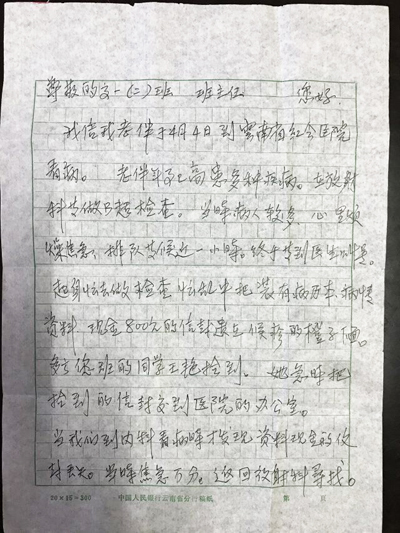 尊敬的文一(二)班 班主任 您好
我信我老伴于4月4日到云南省红会医院
看病。老伴年已高患多种疾病。在放射
科等做B超检查。当时病人较多 心里烦
燥焦急、排队等候近一小时。终于等到医生叫号。
起身忙去做检查忙乱中把装有病历本、病情
资料 现金800元的信封遗忘候诊的橙子上面。
您班的同学王艳捡到。她急时把
捡到的信封交到医院的办公室。
当我们到内科看病时才发现资料现金的信
封丢失。当时焦急万分。返回放射科寻找。
20×15=300 中国人民银行云南省分行稿纸 第 页